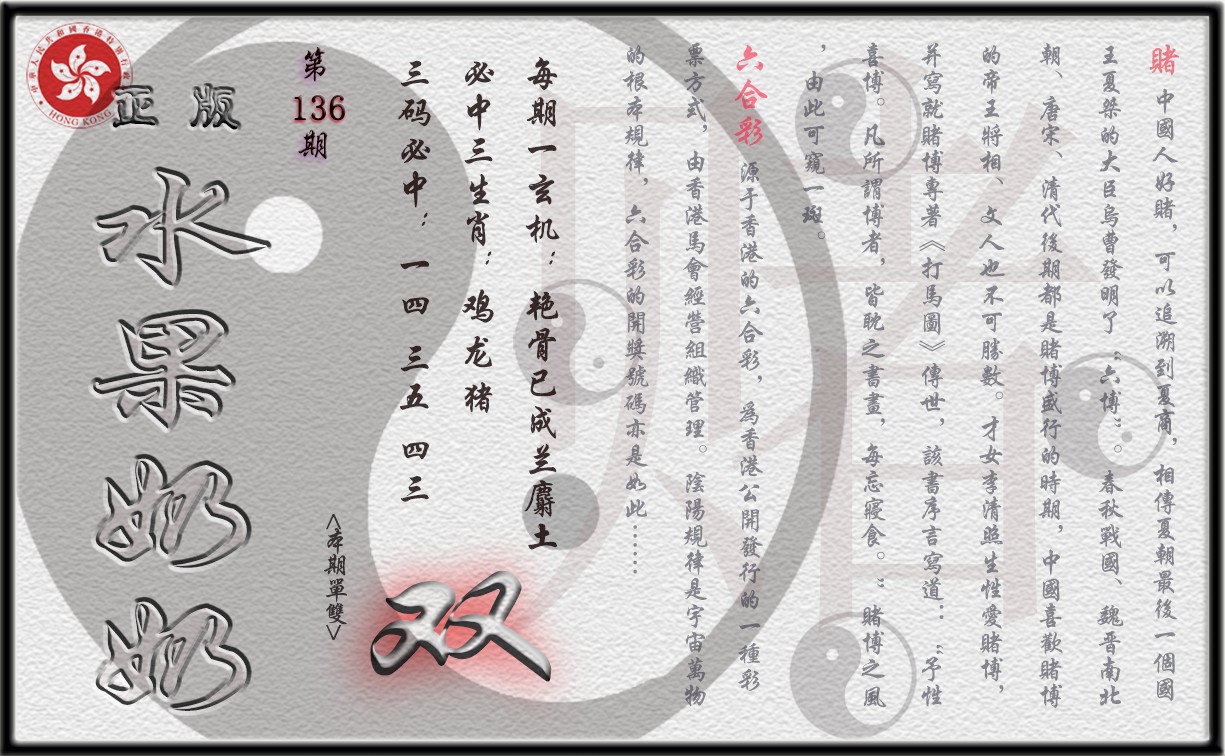 賭 中國人好賭，可以追溯到夏商，相傳夏朝最後一個國
王夏桀的大臣烏曹發明了“六博”。春秋戰國、魏晋南北
朝、唐宋、清代後期都是賭博盛行的時期，中國喜歡賭博
的帝王將相、文人也不可勝數。才女李清照生性愛賭博，
并寫就賭博專著《打馬圖》傳世，該書序言寫道：“予性
喜博。凡所謂博者，皆耽之書畫，每忘寢食。”賭博之風
，由此可窺一斑。
六合彩 源于香港的六合彩，為香港公開發行的一種彩
票方式，由香港馬會經營組織管理。陰陽規律是宇宙萬物
的根本規律，六合彩的開獎號碼亦是如此……
每期一玄机：艳骨已成兰麝土
必中三生肖：鸡龙猪
三码必中：一四 三五 四三
第
136
期
<本期單雙>
双
正版
水果奶奶
中華人民共和國香港特別行政區
HONG KONG
賭